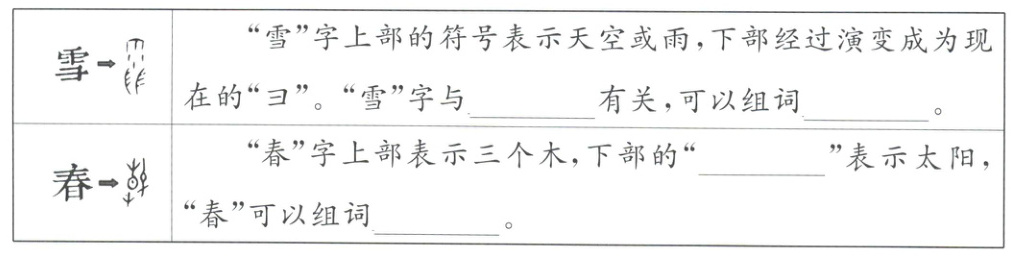 雪➡
“雪”字上部的符号表示天空或雨,下部经过演变成为现
在的“彐”。“雪”字与________有关,可以组词________。
春➡
“春”字上部表示三个木,下部的“________”表示太阳,
“春”可以组词________。